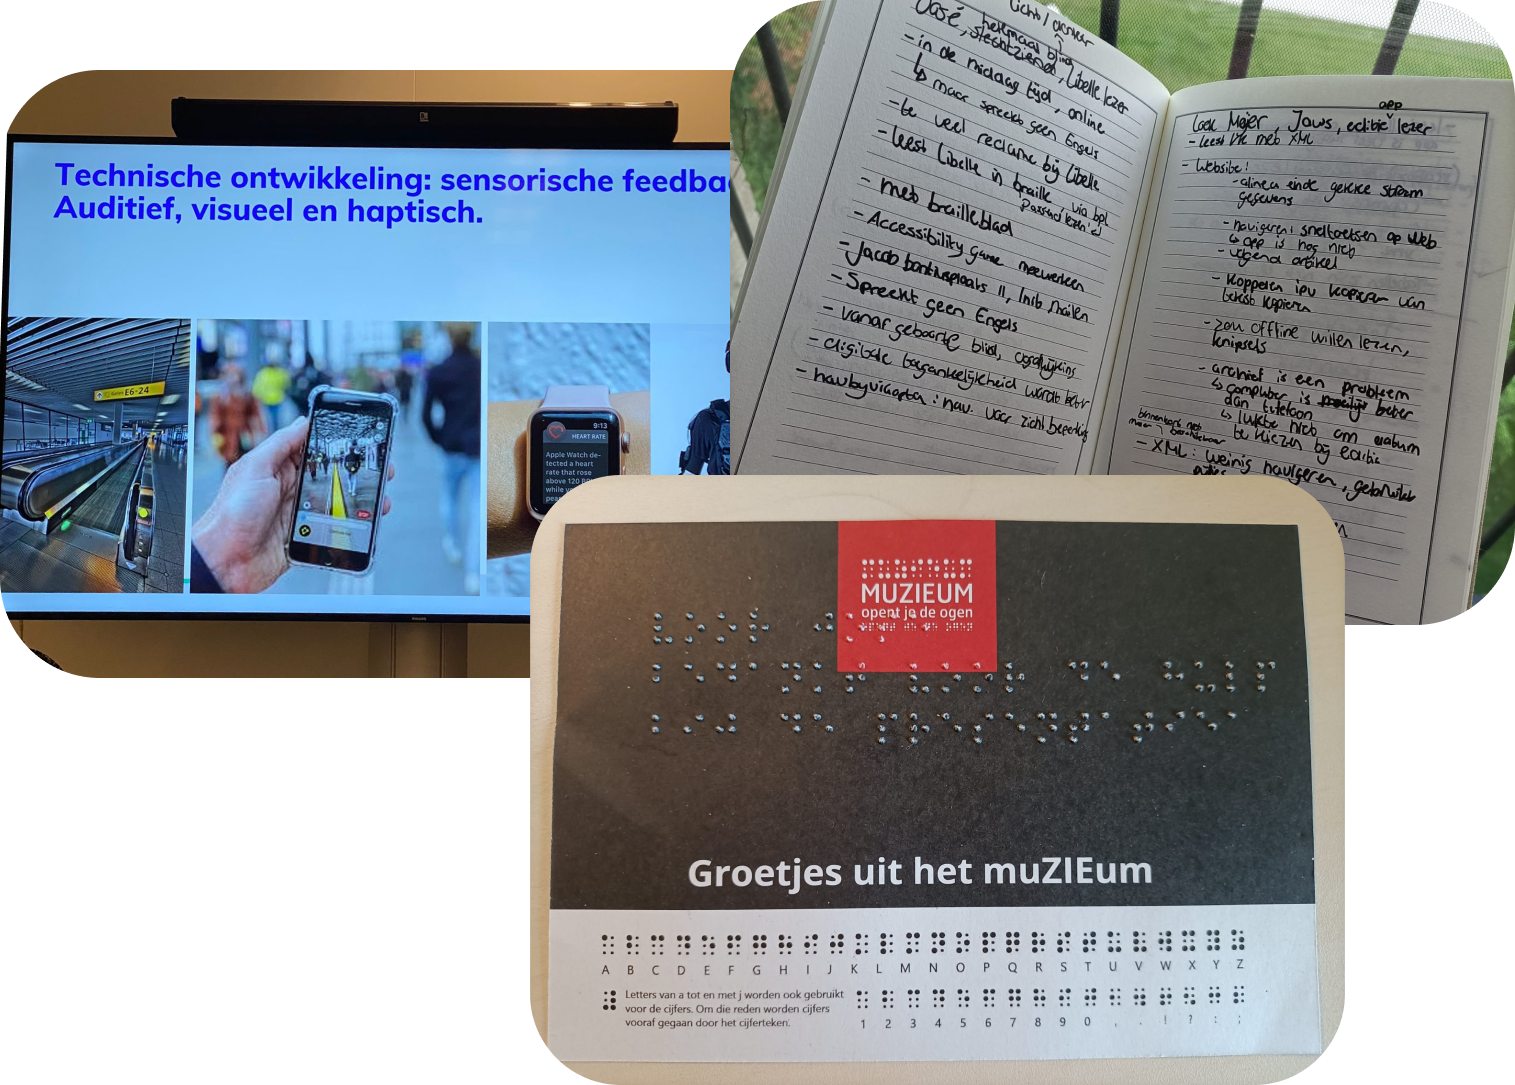 Technische ontwikkeling: sensorische feedba
Auditief, visueel en haptisch.
E6-24
9:13
HEART RATE
Apple Watch de-
tected a heart
rate that rose
above 120 B
while yo
pea
José, helemaal blind
slechtziend, Libelle lezer
licht/donker
- in de middag tijd, online
↳ maar spreekt geen Engels
- te veel reclame bij Libelle
- leest Libelle in braille, via bol
Passend lezen
- met brailleblad
- Accessibility game meewerken
- Jacob
11, link mailen
- Spreekt geen Engels
- vanaf geboorte blind, oogafwijking
- digitale toegankelijkheid wordt beter
: nav. voor zicht beperking
Meijer, Jaws, editie lezer
app
- leest VK met XML
- Website:
- alinea einde
gegevens
- navigeren: sneltoetsen op Web
↳ app is nog niet
- volgend artikel
- koppelen ipv kopieren van
tekst kopieren
- zou offline willen lezen,
knipsels
- archief is een probleem
↳ computer is beter
dan telefoon
↳ lukte niet om datum
te kiezen bij editie
binnenkort niet
meer beschikbaar
- XML: weinig navigeren, gebruikt
MUZIEUM
opent je de ogen
Groetjes uit het muZIEum
A B C D E F G H I J K L M N O P Q R S T U V W X Y Z
Letters van a tot en met j worden ook gebruikt
voor de cijfers. Om die reden worden cijfers
vooraf gegaan door het cijferteken.
1 2 3 4 5 6 7 8 9 0 , . ! ? : ;